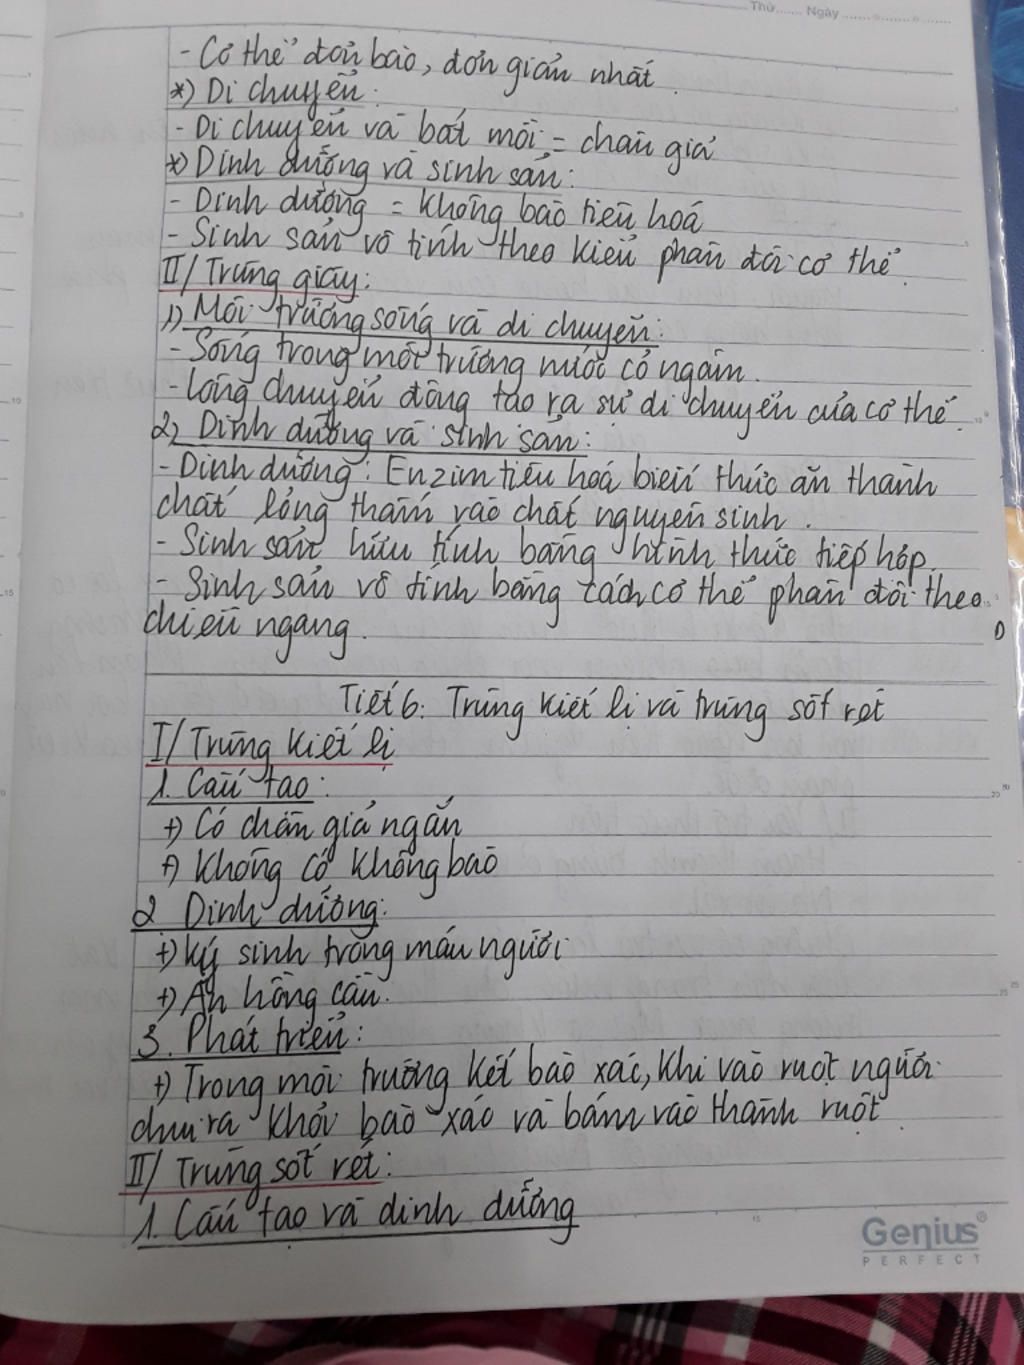 Thứ....... Ngày.....................
- Cơ thể đơn bào, đơn giản nhất.
*) Di chuyển:
- Di chuyển và bắt mồi = chân giả
*) Dinh dưỡng và sinh sản:
- Dinh dưỡng = không bào tiêu hoá
- Sinh sản vô tính theo kiểu phân đôi cơ thể.
II/ Trùng giày:
1) Môi trường sống và di chuyển:
- Sống trong môi trường nước cỏ ngâm.
- lông chuyển động tạo ra sự di chuyển của cơ thể.
2) Dinh dưỡng và sinh sản:
- Dinh dưỡng: Enzim tiêu hoá biến thức ăn thành
chất lỏng thấm vào chất nguyên sinh.
- Sinh sản hữu tính bằng hình thức tiếp hợp.
- Sinh sản vô tính bằng cách cơ thể phân đôi theo
chiều ngang.
Tiết 6: Trùng kiết lị và trùng sốt rét
I/ Trùng kiết lị
1. Cấu tạo:
+) Có chân giả ngắn
+) Không có không bào
2 Dinh dưỡng:
+) ký sinh trong máu người
+) Ăn hồng cầu.
3. Phát triển:
+) Trong môi trường kết bào xác, khi vào ruột người
chui ra khỏi bào xác và bám vào thành ruột
II/ Trùng sốt rét:
1. Cấu tạo và dinh dưỡng
Genius®
PERFECT